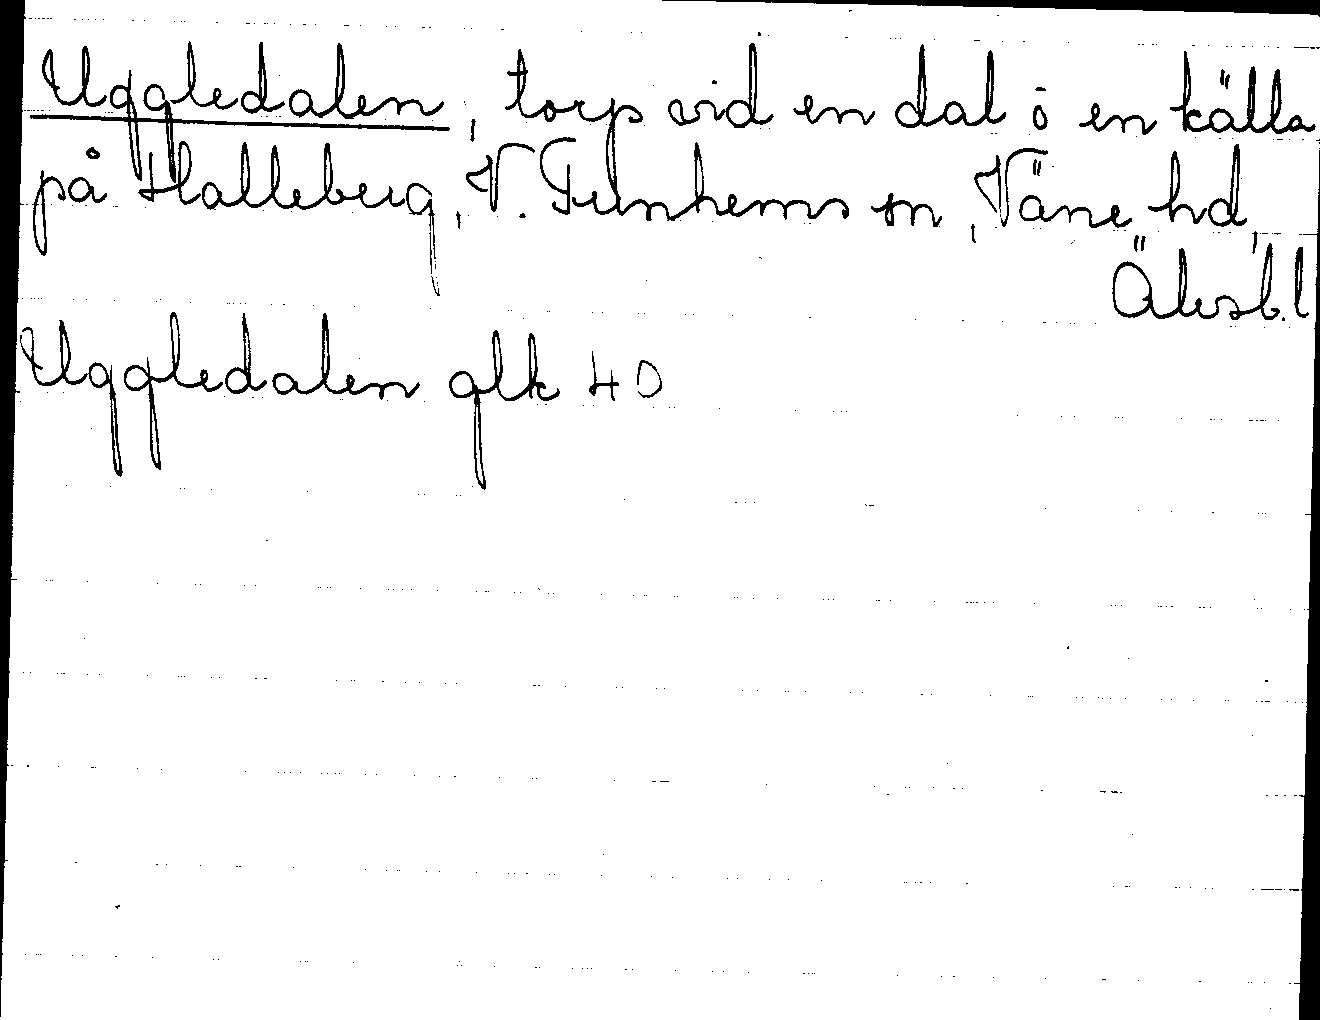 Uggledalen, torp vid en dal ö en källa
på Halleberg, V. Tunhems sn, Väne hd,
Älvsb.l
Uggledalen glk 40